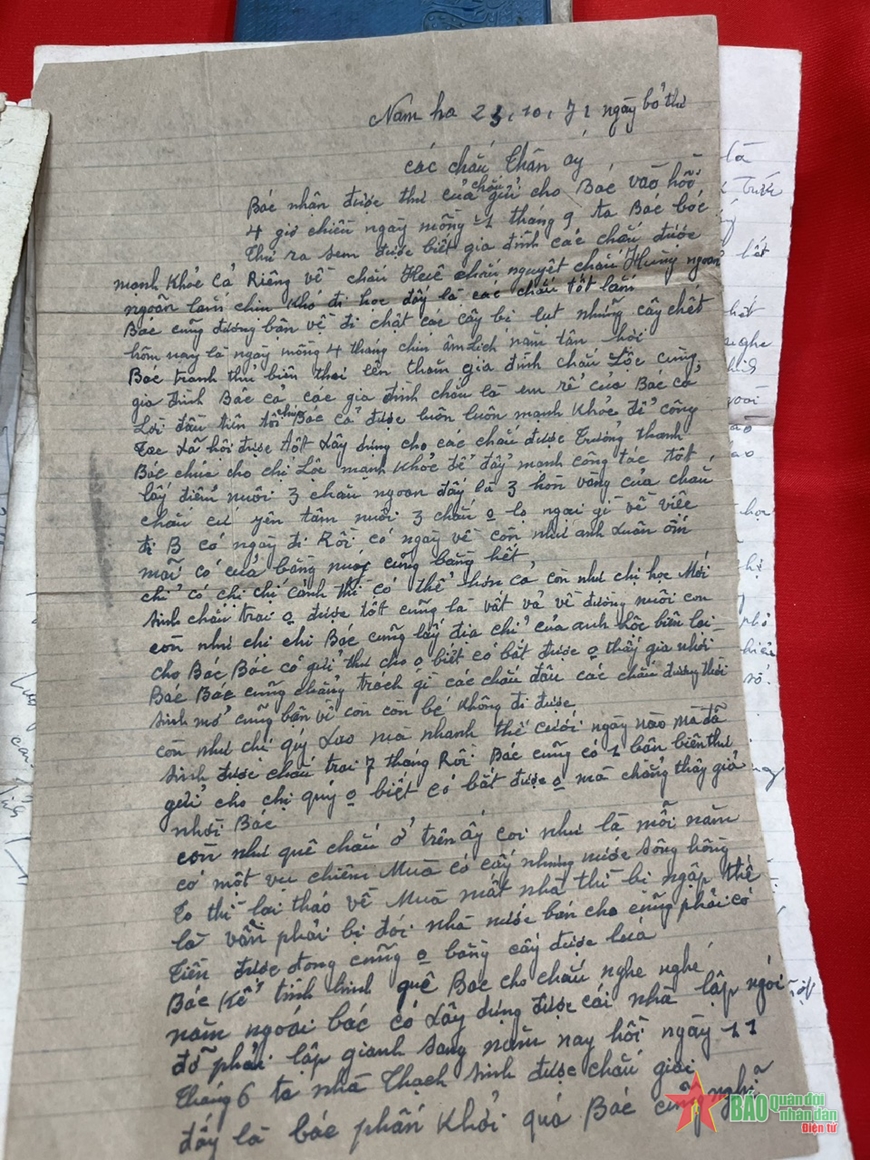 Nam hà 23.10.71 ngày bỏ thư
các cháu Thân ái
Bác nhận được thư của cháu gửi cho Bác vào hồi
4 giờ chiều ngày mồng 1 tháng 9 ta Bác bóc
Thư ra sem được biết gia đình các cháu được
mạnh khỏe cả Riêng về cháu Huê cháu nguyệt cháu Hưng ngoan
ngoãn lắm chịu khó đi học đấy là các cháu tốt lắm
Bác cũng đương bận về đi chặt các cây bị lụt những cây chết
hôm nay là ngày mồng 4 tháng chín âm lịch năm tân hợi
Bác tranh thủ biên thơi lên thăm gia đình cháu Lộc cùng
gia đình Bác cả các gia đình cháu là em rể của Bác cả
Lời đầu tiên tôi chúc Bác cả được luôn luôn mạnh khỏe để công
Tác Xã hội được tốt Xây dựng cho các cháu được Trưởng thành
Bác chúc cho chị Lộc mạnh khỏe để đẩy mạnh công tác tốt
lấy điểm nuôi 3 cháu ngoan đấy là 3 hòn vàng của cháu
cháu cứ yên tâm nuôi 3 cháu o lo ngại gì về việc
đi B có ngày đi Rồi có ngày về còn như anh Luân ốm
mãi có của bằng nước cũng bằng hết
chỉ có chị chị cảnh thì có thể hơn cả còn như chị học Mới
sinh cháu trai o được tốt cũng là vất vả về đường nuôi con
còn như chị chi Bác cũng lấy địa chỉ của anh Lộc biên lại
cho Bác Bác có gửi thư cho o biết có bắt được o thấy gia nhời
Bác Bác cũng chẳng trách gì các cháu đâu các cháu đương thời
sinh nở cũng bận về con còn bé không đi được
còn như chị quý Lao mà nhanh thế cưới ngày nào mà đã
sinh được cháu trai 7 tháng Rồi Bác cũng có 1 bận biên thư
gửi cho chị quý o biết có bắt được o mà chẳng thấy giả
nhời Bác
còn như quê cháu ở trên ấy coi như là mỗi năm
có một vụ chiêm Mùa có cấy nhưng nước sông hồng
To thì lại tháo về Mùa mất nhà thì bị ngập thế
là vẫn phải bị đói nhà nước bán cho cũng phải có
Tiền được đong cũng o bằng cấy được lúa
Bác kể tình hình quê Bác cho cháu nghe nghé
năm ngoái bác có Xây dựng được cái nhà lập ngói
đỡ phải lập gianh sang năm nay hồi ngày 11
tháng 6 ta nhà Thạch sinh được cháu giai
đấy là bác phấn khởi quá Bác cũng nghĩ
BÁO Quân đội
nhân dân
Điện tử